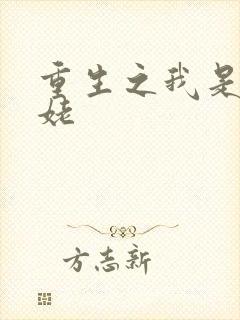 重生之我是
姥
方志新